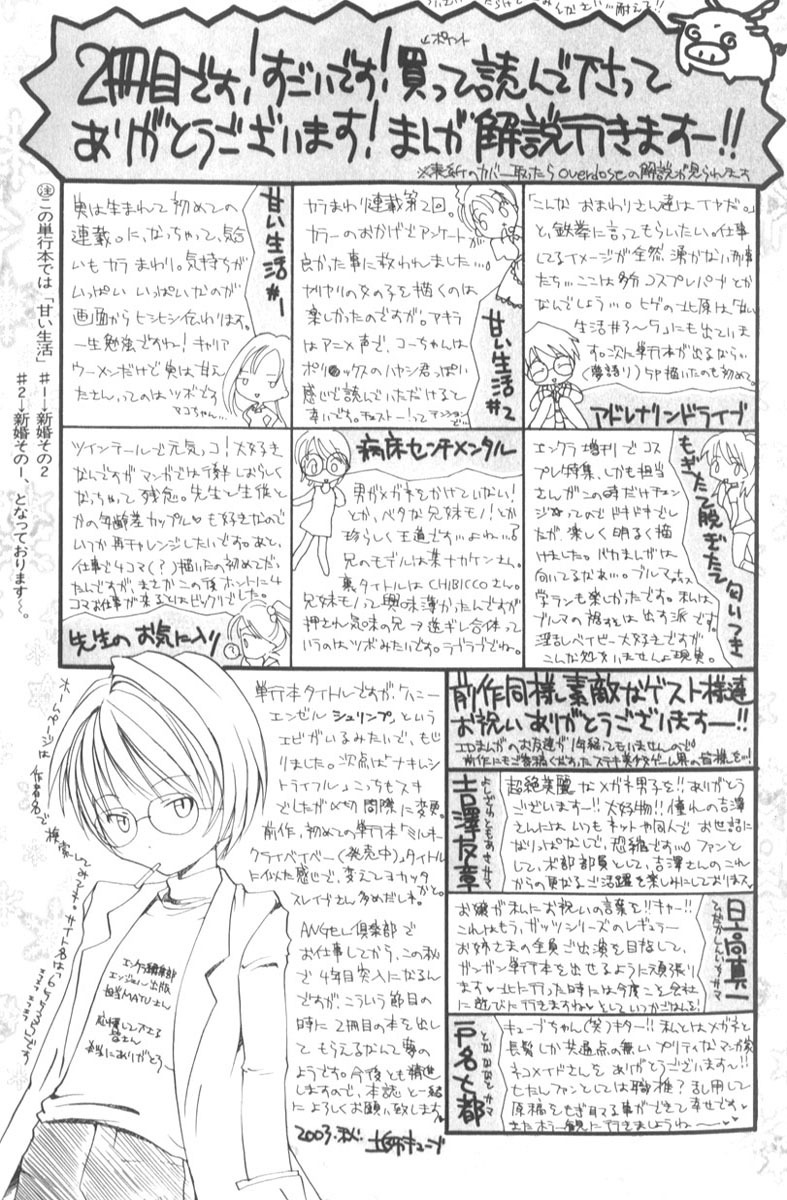 ←ポイント
2冊目です!すごいです!買って読んで下さって
ありがとうございます!まんが解説行きますー!!
※表紙のカバー取ったらoverdoseの解説が見られます
注 この単行本では「甘い生活」
#1→新婚その2
#2→新婚その1、となっております〜。
甘い生活#1
実は生まれて初めての
連載。に、なっちゃって、気合
いもカラまわり。気持ちが
いっぱいいっぱいなのが
画面からヒシヒシ伝わります。
一生勉強ですね!キャリア
ウーメンだけど実は甘え
たさんってのはツボです
マコちゃん…
甘い生活#2
カラまわり連載第2回。
カラーのおかげでアンケートが
良かった事に救われました…。
ヤリヤリの女の子を描くのは
楽しかったのですが。アキラ
はアニメ声で、コーちゃんは
感じで読んでいただけると
幸いです。
アドレナリンドライブ
「こんなおまわりさん達はイヤだ。」
と、鉄拳に言ってもらいたい。仕事
してるイメージが全然湧かない刑事
たち…ここは多分コスプレパブとか
なんでしょう…。ヒゲの北原は「甘い
生活#3〜5」にも出ていま
す。次に単行本が出るなら…
(夢語り)5P描いたのも初めて。
先生のお気に入り
ツインテールで元気っコ!大好き
なんですがマンガでは
なっちゃって残念。先生と生徒と
かの年齢差カップルも好きなので
いつか再チャレンジしたいです。あと、
仕事で4コマ(?)描いたの初めてだっ
たんですが、まさかこの後ホントに4
コマお仕事が来るとはビックリでした。
病床センチメンタル
男がメガネをかけていない!
とか、ベタな兄妹モノ!とか
珍らしく王道です…よね…?
兄のモデルは某ナカケンさん。
裏タイトルはCHIBICCOさん。
兄妹モノって興味薄かったんですが
押され気味の兄→逆ギレ合体って
いうのはツボみたいです。ラブラブでね。
もぎたて脱ぎたて匂いつき
エンクラ増刊でコス
プレ特集、しかも担当
さんがこの時だけチェン
ジってのでドキドキでし
たが、楽しく明るく描
けました。バカまんがは
向いてるなあ…。ブルマ
学ランも楽しかったです。私は
ブルマの裾は出す派です。
淫乱ベイビー大好きですが
こんな処いませんよ現実。
前作同様、素敵なゲスト様達
お祝いありがとうございますー!!
エロまんがのお友達が1年経ってもいませんので
前作にもご寄稿くださったステキ美少女ゲーム界の皆様を…!
吉澤友章
よしざわともあきサマ
超絶美麗なメガネ男子を!!ありがとう
ございますー!!大好物!!憧れの吉澤
さんにはいつもネットや同人でお世話に
なりっぱなしで、恐縮です…。ファンと
して、本部部員として、吉澤さんのこれ
からの更なるご活躍を楽しみにしておりまス
日高真一
ひだかしんいちサマ
お嬢が私にお祝いの言葉を!!キャー!!
これはもう、ガッツシリーズのレギュラー
お姉さまの全員ご出演を目指して、
ガンガン単行本を出せるように頑張り
ます♥北に行った時には今度こそ会社
に遊びに行きますね♥としていつかごはんを!
戸名七都
となななとサマ
キューブちゃん(笑)キター!!私とはメガネと
長髪しか共通点の無いプリティなマンガ家
ネコメイドさんをありがとうございますー!!
もたしファンとしては職権?乱用して
原稿をもぎ取る事ができて幸せです。
またホラー観に行きましょうね〜♥
単行本タイトルですが、「ハニー
エンゼルシュリンプ」という
エビがいるみたいで、もじ
りました。次点は「ナキムシ
トライフル」。こっちもスキ
でしたが〆切間際に変更。
前作、初めての単行本「ミルキー
クライベイベー(発売中)」タイトル
に似た感じで、変えてヨカッタ
かと。
スレイブさん多めだしネ。
ANGEL倶楽部で
お仕事してから、この秋
で4年目突入になるん
ですが、こういう節目の
時に2冊目の本を出し
てもらえるなんて夢の
ようです。今後とも精進
しますので、本誌と一緒
によろしくお願い致します。
2003.秋。土師キューブ
ホームページは
作者名で
検索してみて下さい
エンクラ編集部
エンジェル出版
担当MAYUさん
応援して下さる
皆さん
本当にありがとう〜